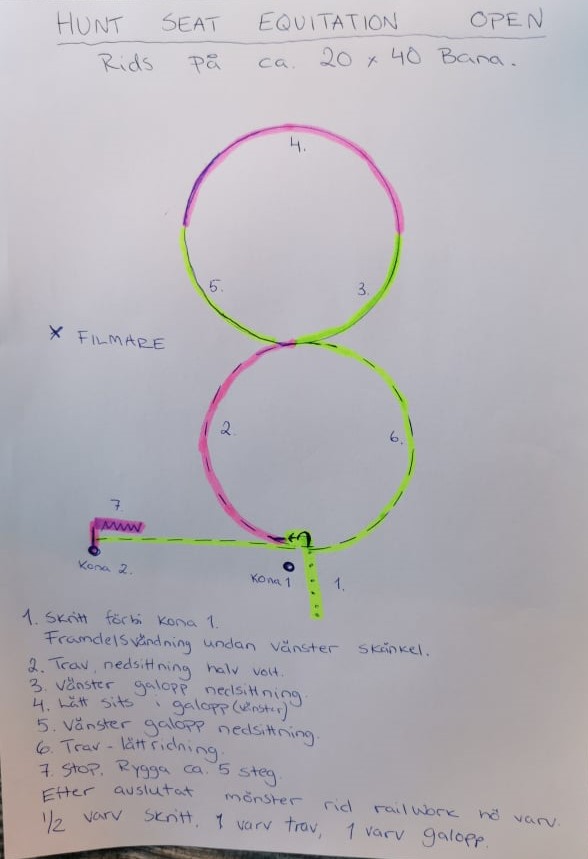 HUNT SEAT EQUITATION OPEN
Rids på ca. 20 x 40 Bana.
4.
5.
3.
x FILMARE
2.
6.
7
Kona 2.
Kona 1
1.
1. Skritt förbi kona 1.
Framdelsvändning undan vänster skänkel.
2. Trav, nedsittning halv volt.
3. Vänster galopp nedsittning.
4. Lätt sits i galopp (vänster)
5. Vänster galopp nedsittning.
6. Trav - lättridning.
7. Stop. Rygga ca. 5 steg.
Efter avslutat mönster rid railwork hö varv.
1/2 varv skritt, 1 varv trav, 1 varv galopp.